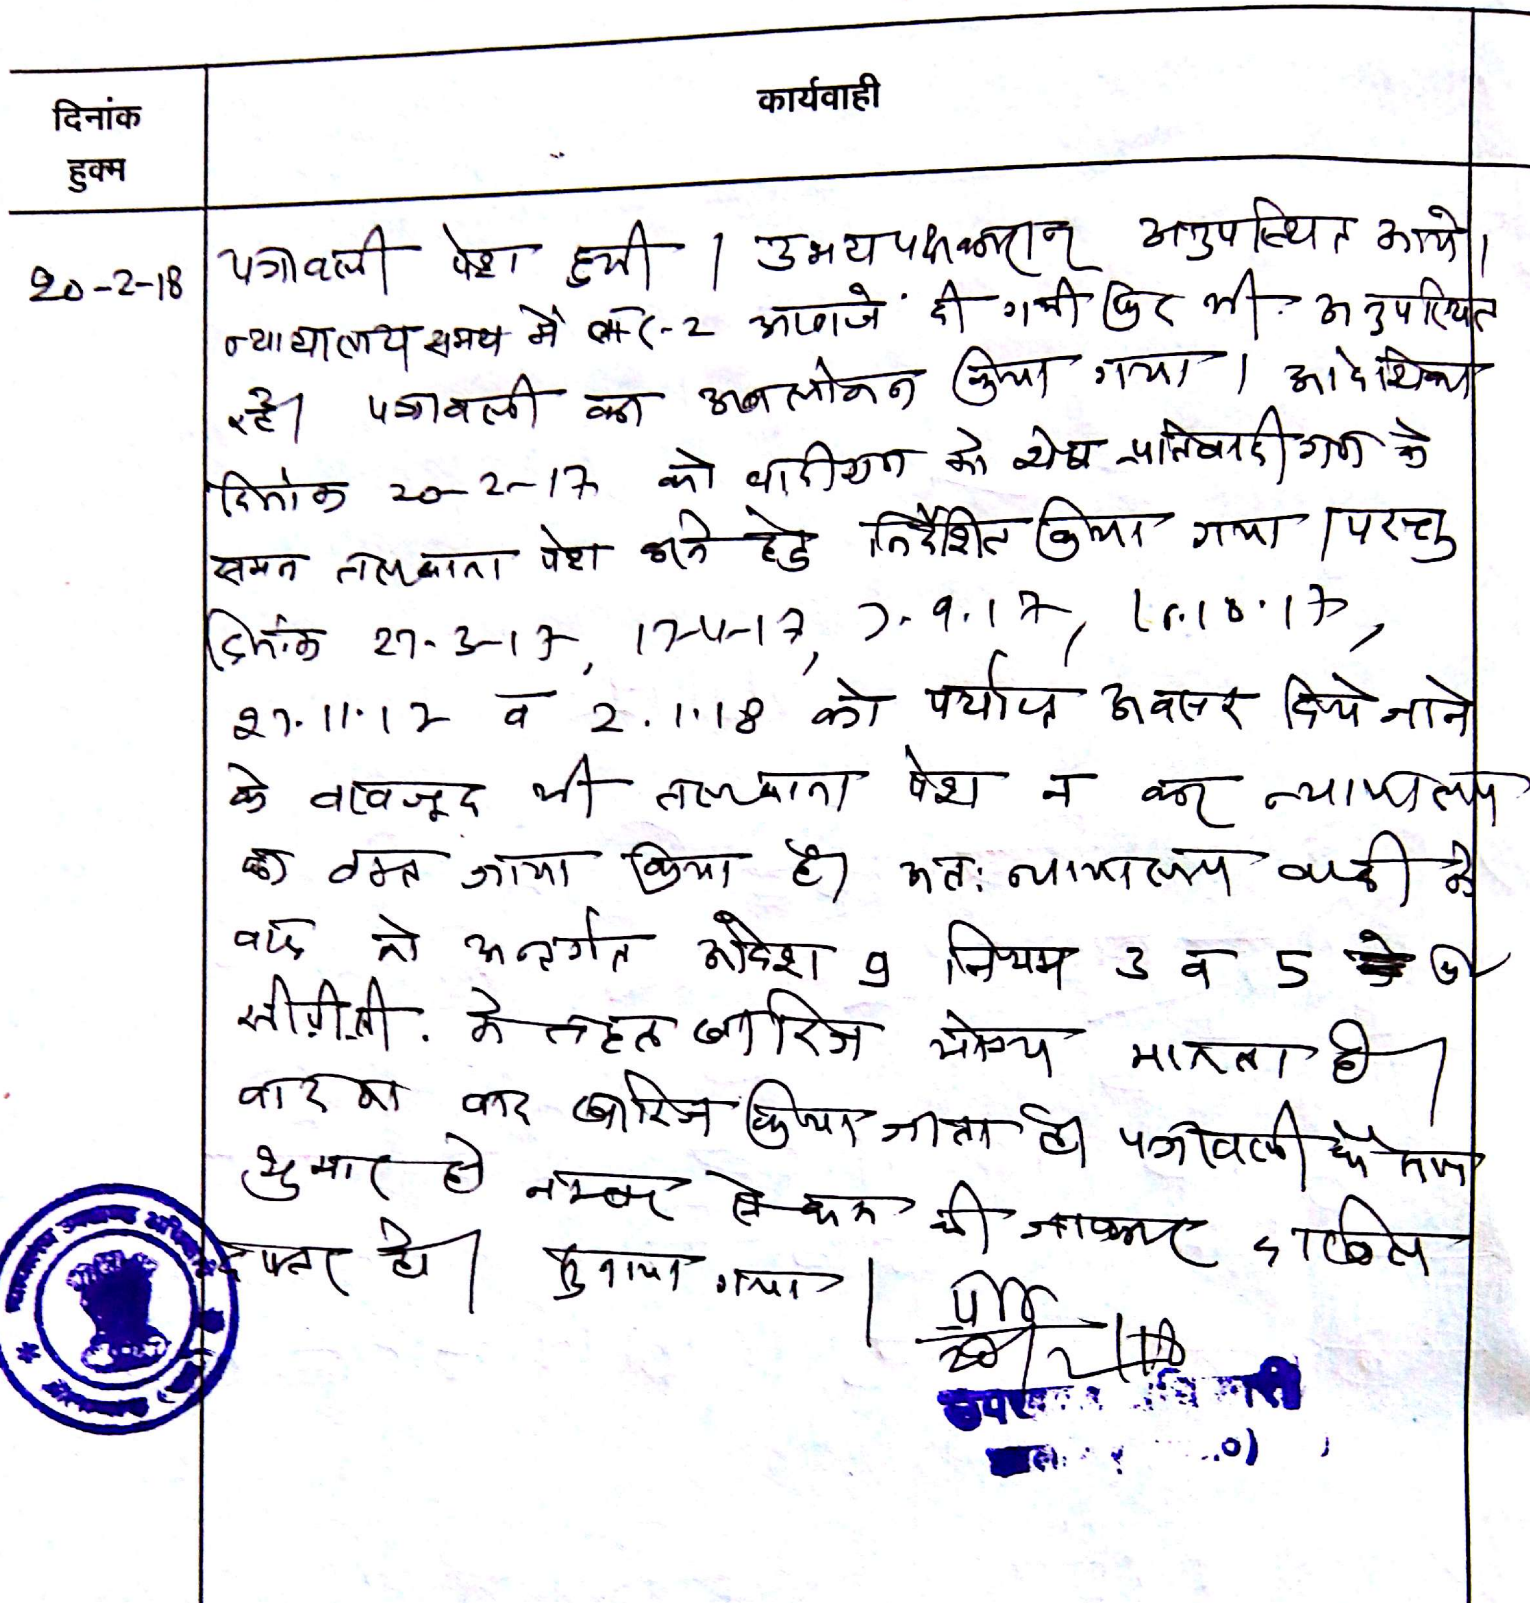 दिनांक
हुक्म
कार्यवाही
20-2-18
पत्रावली पेश हुयी । उभयपक्षकारान् अनुपस्थित आये।
न्यायालय समय में बार-2 आवाजें दी गयी फिर भी अनुपस्थित
रहे। पत्रावली का अवलोकन किया गया । आदेशिका
दिनांक 20-2-17 को वादीगण को शेष प्रतिवादीगण के
समन तलबाना पेश करने हेतु निर्देशित किया गया । परन्तु
दिनांक 27-3-17, 17-4-17, 7.9.17,
27.11.17 व 2.1.18 को पर्याप्त अवसर दिये जाने
के बावजूद भी तलबाना पेश न कर न्यायालय
का वक्त जाया किया है। अतः न्यायालय वादी के
वाद को अन्तर्गत आदेश 9 नियम 3 व 5
सी.पी.सी. के तहत खारिज योग्य मानता है।
वाद खारिज किया जाता है। पत्रावली फैसल
शुमार हो नम्बर से कम की जाकर दाखिल
दफ्तर हो। सुनाया गया।